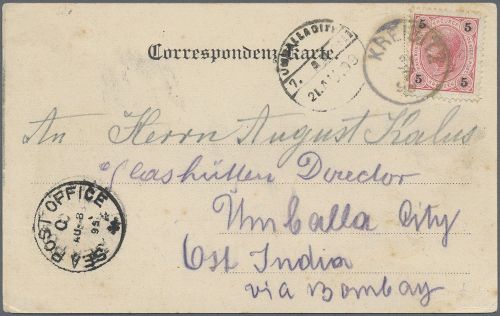 Correspondenz-Karte.
5 5
5 5
An Herrn August Kalus
Glashütten Director
Umballa City
Ost India
via Bombay
SEA POST OFFICE
AU 8